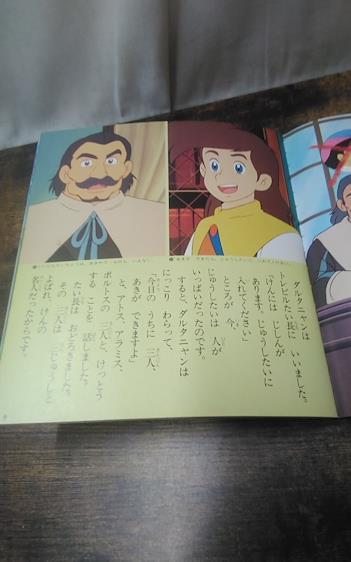 ダルタニャンは
トレビルたい長に いいました。
「けんには じしんが
あります。じゅうしたいに
入れてください」
ところが 今、
じゅうしたいは 人が
いっぱいだったのです。
すると、ダルタニャンは
にっこり わらって、
「今日の うちに 三人、
あきが できますよ」
と、アトス、アラミス、
ポルトスの 三人と、けっとう
する ことを 話しました。
たい長は おどろきました。
その 三人は 三じゅうしと
よばれ、けんの
名人だったからです。